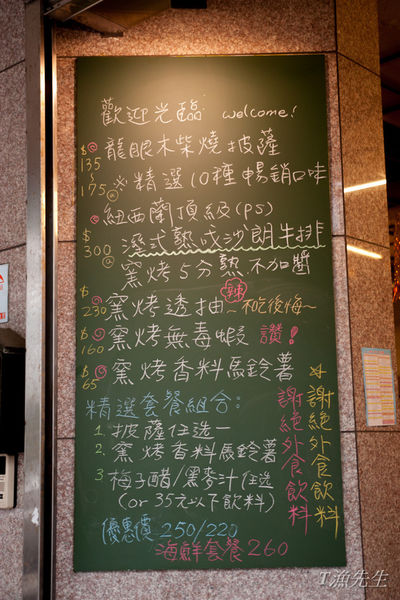 歡迎光臨 welcome!
$135~175 龍眼木柴燒披薩
※精選10種暢銷口味
紐西蘭頂級(ps)
$300 濕式熟成沙朗牛排
窯烤5分熟不加醬
$230 窯烤透抽 辣 ~不吃後悔~
$160 窯烤無毒蝦 讚!
$65 窯烤香料馬鈴薯
精選套餐組合:
1. 披薩任選一
2. 窯烤香料馬鈴薯
3 梅子醋/黑麥汁任選
(or 35元以下飲料)
優惠價 250/220
海鮮套餐 260
謝絕外食飲料
謝絕外食飲料
T.漁先生